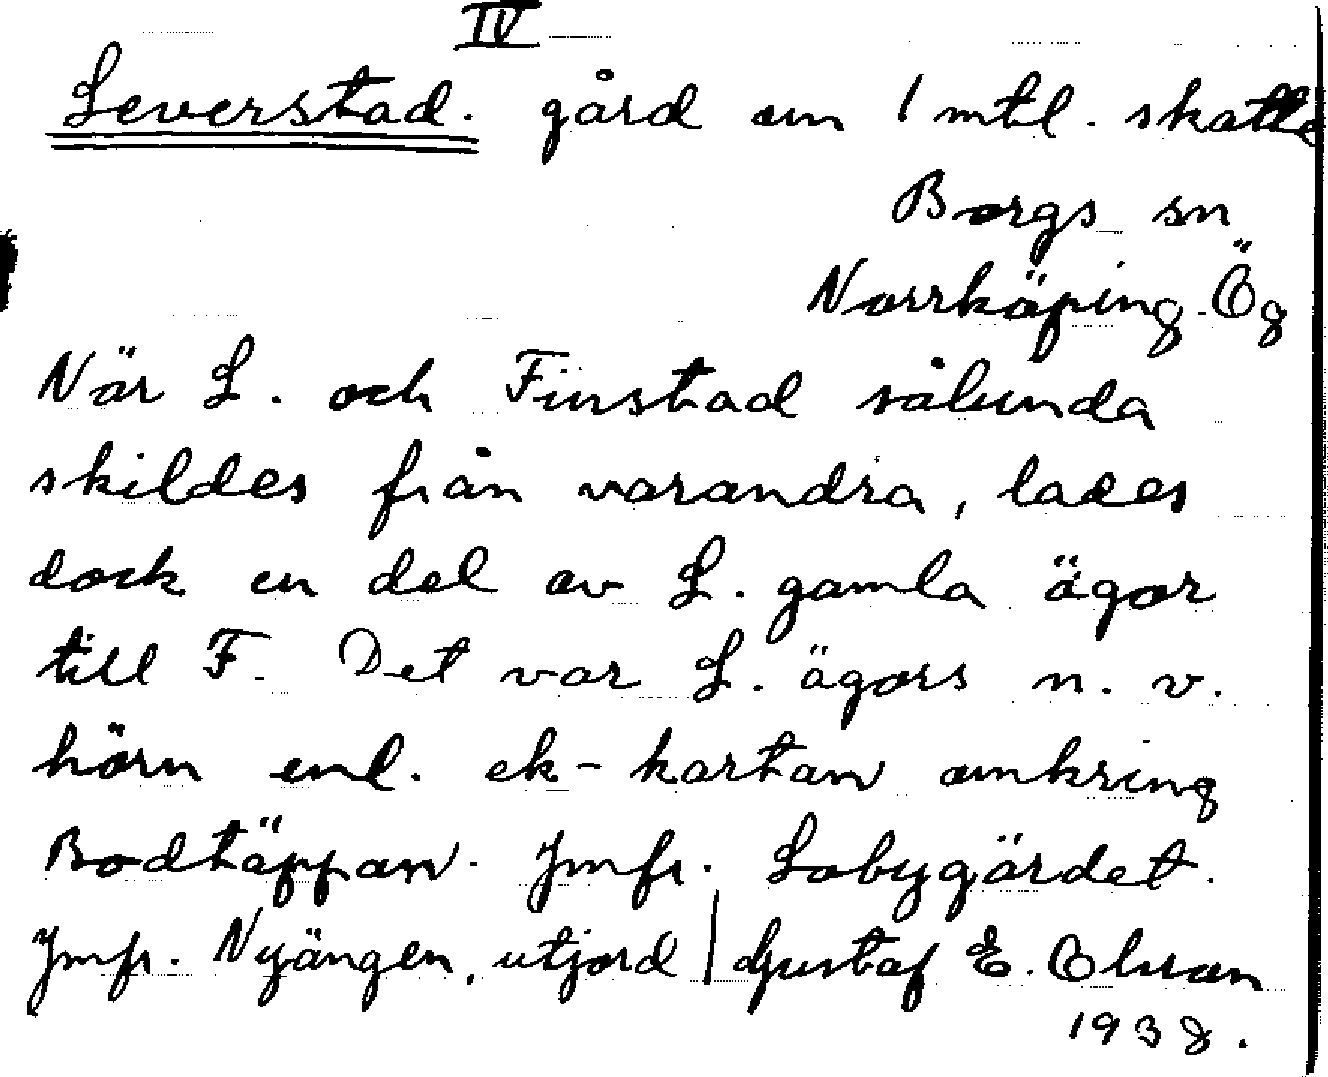 IV
Leverstad. gård om 1 mtl. skatte
Borgs sn
Norrköping. Ög
När L. och Finstad sålunda
skildes från varandra, lades
dock en del av L. gamla ägor
till F. Det var L. ägors n. v.
hörn enl. ek-kartan omkring
Bodtäppan. Jmfr. Lobygärdet.
Jmfr. Nyängen, utjord | Gustaf E. Olsson
1938.